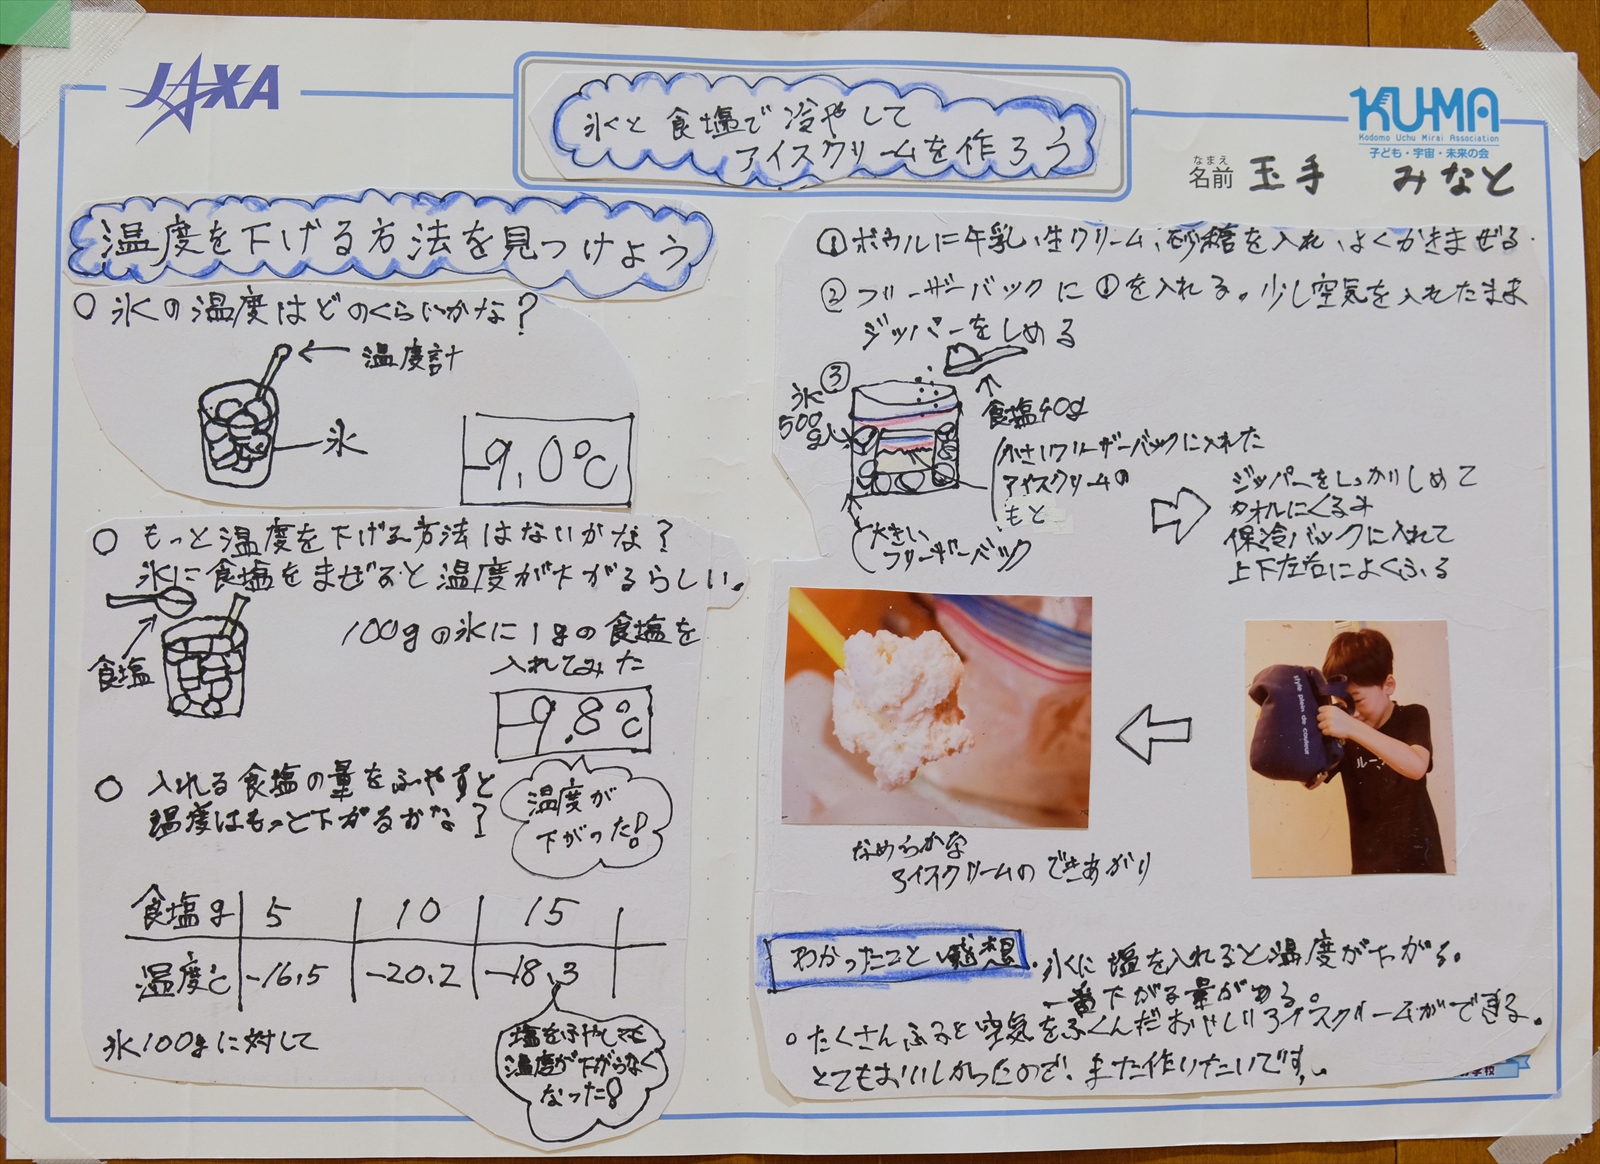 JAXA
氷と食塩で冷やして
アイスクリームを作ろう
KU-MA
Kodomo Uchu Mirai Association
子ども・宇宙・未来の会
なまえ
名前 玉手 みなと
温度を下げる方法を見つけよう
○ 氷の温度はどのくらいかな?
温度計
氷
-9.0℃
○ もっと温度を下げる方法はないかな?
氷に食塩をまぜると温度が下がるらしい。
食塩
100gの氷に1gの食塩を
入れてみた
-9.8℃
○ 入れる食塩の量をふやすと
温度はもっと下がるかな?
温度が
下がった!
食塩g 5 10 15
温度℃ -16.5 -20.2 -18.3
氷100gに対して
塩をふやしても
温度が下がらなく
なった!
①ボウルに牛乳、生クリーム、砂糖を入れ、よくかきまぜる.
②フリーザーバックに①を入れる。少し空気を入れたまま
ジッパーをしめる
③
氷
500
g
食塩40g
小さいフリーザーバックに入れた
アイスクリームの
もと
大きい
フリーザーバック
ジッパーをしっかりしめて
タオルにくるみ
保冷バックに入れて
上下左右によくふる
style plein de couleur
なめらかな
アイスクリームのできあがり
わかったこと、感想
・氷に塩を入れると温度が下がる。
一番下がる量がある。
○たくさんふると空気をふくんだおいしいアイスクリームができる。
とてもおいしかったので、また作りたいです。
学校